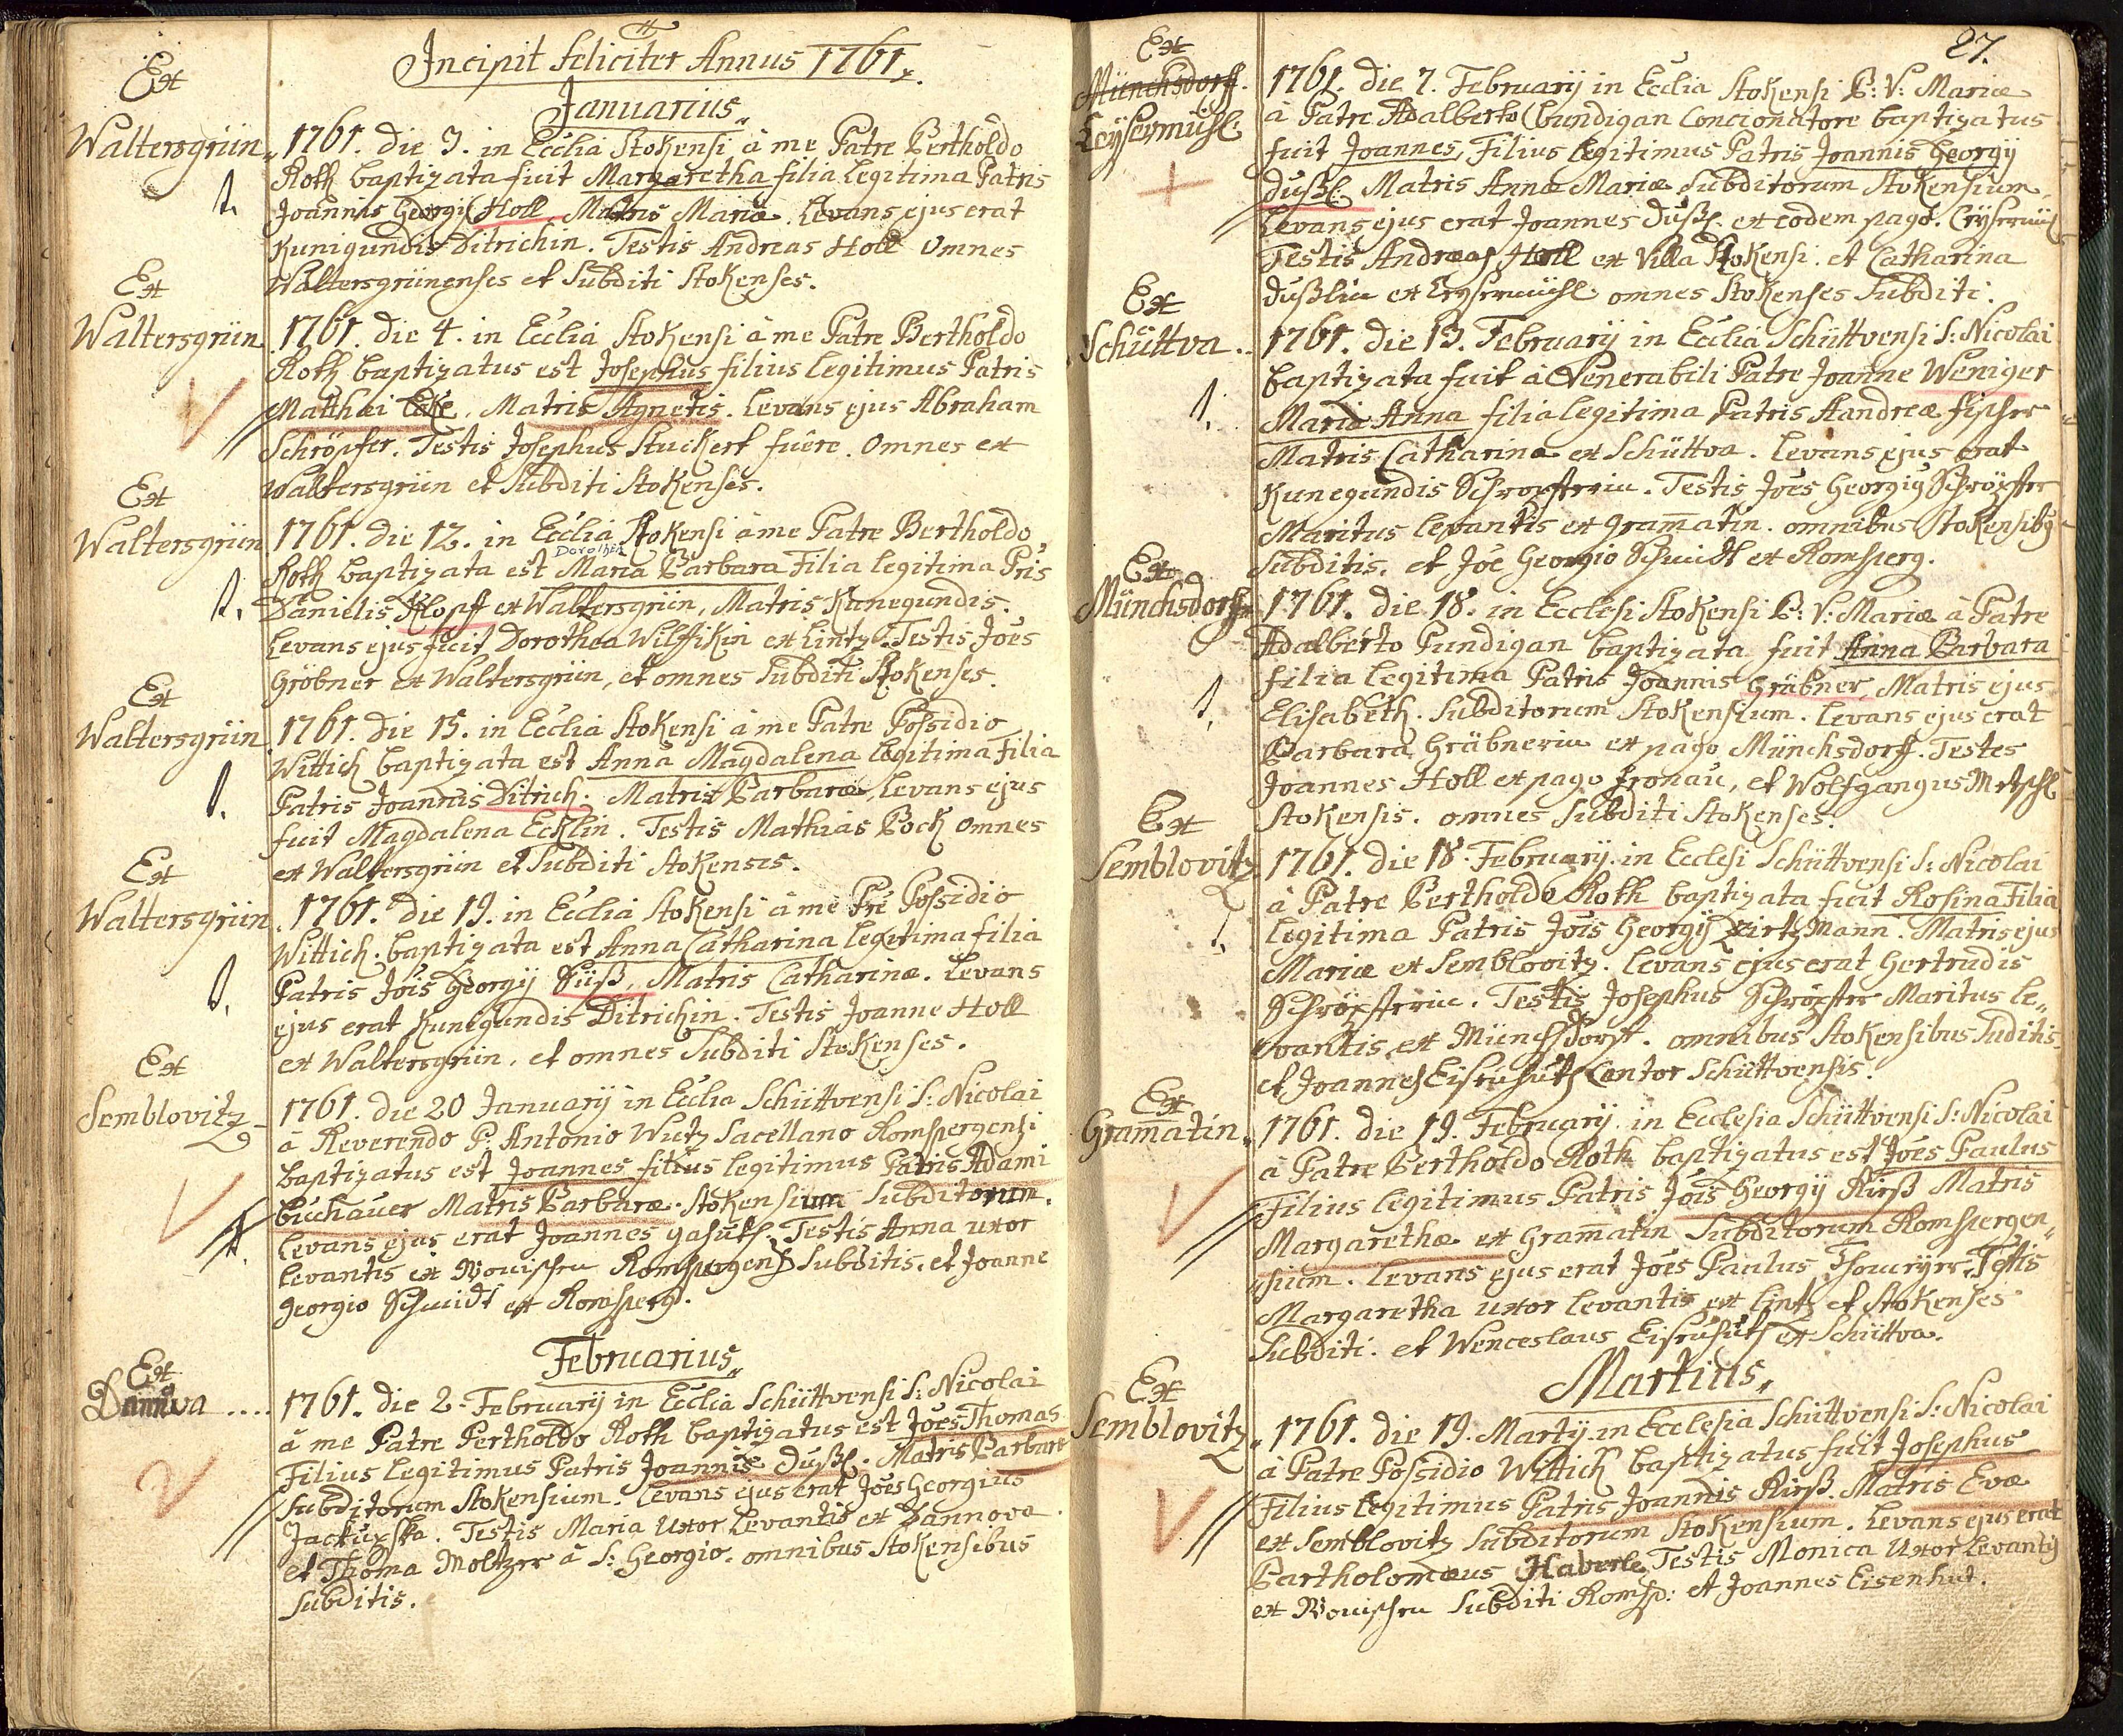 Incipit feliciter Annus 1761.
Januarius
Ex
Waltersgrün
1761. die 3. in Ecclia Stokensi à me Patre Bertholdo
Roth baptizata fuit Margaretha filia legitima Patris
Joannis Georgij Holl, Matris Mariæ. Levans ejus erat
Kunigundis Ditrichin. Testis Andreas Holl Omnes
Waltersgrünenses et Subditi Stokenses.
Ex
Waltersgrün
1761. die 4. in Ecclia Stokensi à me Patre Bertholdo
Roth baptizatus est Josephus filius legitimus Patris
Matthæi Matris Agnetis. Levans ejus Abraham
Schröpfer. Testis Josephus Stuckert fuêre. Omnes ex
Waltersgrün et Subditi Stokenses.
Ex
Waltersgrün
1761. die 12. in Ecclia Stokensi à me Patre Bertholdo
Dorothea
Roth baptizata est Maria Barbara Filia legitima Pris
Danielis Klopf ex Waltersgrün, Matris Kunegundis.
Levans ejus fuit Dorothea Wilffikin ex Lintz. Testis Joes
Gröbner ex Waltersgrün, et omnes Subditi Stokenses.
Ex
Waltersgrün
1761. die 15. in Ecclia Stokensi à me Patre Possidio
Wittich baptizata est Anna Magdalena legitima Filia
Patris Joannis Ditrich. Matris Barbaræ, Levans ejus
fuit Magdalena Ecklin. Testis Mathias Bock omnes
ex Waltersgrün et Subditi Stokenses.
Ex
Waltersgrün
1761. die 19. in Ecclia Stokensi à me Pre Possidio
Wittich. baptizata est Anna Catharina legitima filia
Patris Jois Georgij Süß, Matris Catharinæ. Levans
ejus erat Kunegundis Ditrichin. Testis Joanne Holl
ex Waltersgrün, et omnes Subditi Stokenses.
Ex
Semblovitz
1761. die 20 Januarij in Ecclia Schüttvensi S: Nicolai
à Reverendo P. Antonio Wutz Sacellano Romspergensi
baptizatus est Joannes filius legitimus Patris Adami
Buchauer Matris Barbaræ. Stokensium Subditorum.
Levans ejus erat Joannes Testis Anna uxor
levantis ex Wonischen Subditis. et Joanne
Georgio Schmidt ex Romsperg.
Februarius
Ex
Dannova ....
1761. die 2. Februarij in Ecclia Schüttvensi S: Nicolai
à me Patre Pertholdo Roth baptizatus est Joes Thomas
Filius legitimus Patris Joannis Dußl. Matris Barbaræ
Subditorum Stokensium. Levans ejus erat Joes Georgius
Testis Maria Uxor Levantis ex Dannova
et Thoma Moltzer à S: Georgio. omnibus Stokensibus
Subditis.
27.
Ex
Münchsdorff.
Leysermühl
1761. die 7. Februarij in Ecclia Stokensi B: V: Mariæ
à Patre Adalberto Bundigan Concionatore baptizatus
fuit Joannes, Filius legitimus Patris Joannis Georgij
Dußl. Matris Annæ Mariæ Subditorum Stokensium.
Levans ejus erat Joannes Dußl. ex eodem pago. Leysermühl
Testis Andreas Holl ex Villa Stokensi. et Catharina
Dußlin ex Leysermühl omnes Stokenses Subditi.
Ex
Schüttva..
1761. die 13. Februarij in Ecclia Schüttvensi S: Nicolai
baptizata fuit à Venerabili Patre Joanne Weniger
Maria Anna filia legitima Patris Aandreæ Fischer
Matris Catharina ex Schüttva. Levans ejus erat
Kunegundis Schröpferin. Testis Joes Georgig Schröpfer
Maritus levantis ex Gram̄atin. omnibus Stokensibg
Subditis. et Joe Georgio Schmidt ex Romsperg.
Ex
Münchsdorff
1761. die 18. in Ecclesi Stokensi B: V: Mariæ à Patre
Adalberto Pundigan baptizata fuit Anna Barbara
filia legitima Patris Joannis Gräbner, Matris ejus
Elisabeth. Subditorum Stokensium. Levans ejus erat
Barbara Gräbnerin ex pago Münchsdorff. Testes
Joannes Holl ex pago Fronau, et Wolfgangus Metschl
Stokensis. omnes Subditi Stokenses.
Ex
Semblovitz
1761. die 18. Februarij. in Ecclesi Schüttvensi S: Nicolai
à Patre Bertholdo Roth baptizata fuit Rosina Filia
legitima Patris Jois Georgij Matris ejus
Mariæ ex Semblovitz. Levans ejus erat Gertrudis
Schröpferin. Testis Josephus Schröpfer Maritus le„
vantis, ex Münchsdorf. omnibus Stokensibus Suditis
et Joannes Eisenhuth Cantor Schüttvensis.
Ex
Gram̄atin„
1761. die 19. Februarij in Ecclesia Schüttvensi S: Nicolai
à Patre Bertholdo Roth baptizatus est Joes Paulus
Filius legitimus Patris Jois Georgij Rieß Matris
Margarethæ ex Gram̄atin Subditorum Romspergen„
sium. Levans ejus erat Joes Paulus Testis
Margaretha uxor levantis ex Lintz et Stokenses
Subditi. et Wenceslaus Eisenhuth ex Schüttva.
Martius,
Ex
Semblovitz„
1761. die 19. Martij. in Ecclesia Schüttvensi S: Nicolai
à Patre Possidio Wittich baptizatus fuit Josephus
Filius legitimus Patris Joannis Rieß. Matris Evæ
ex Semblovitz Subditorum Stokensium. Levans ejus erat
Bartholomæus Haberle Testis Monica Uxor levantis
ex Wonischen Subditi Romsp: et Joannes Eisenhut.